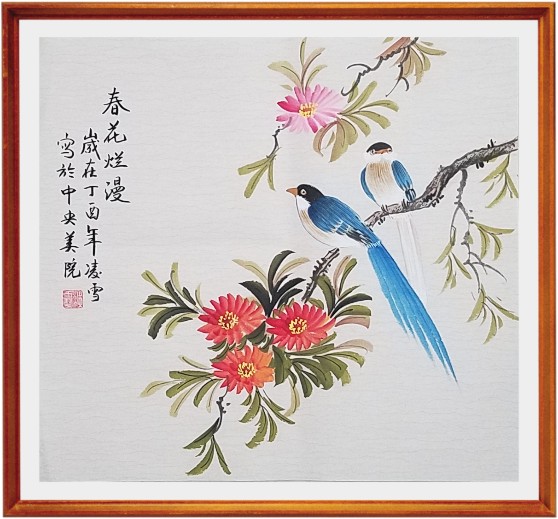 春花烂漫
歲在丁酉年凌雪
寫於中央美院